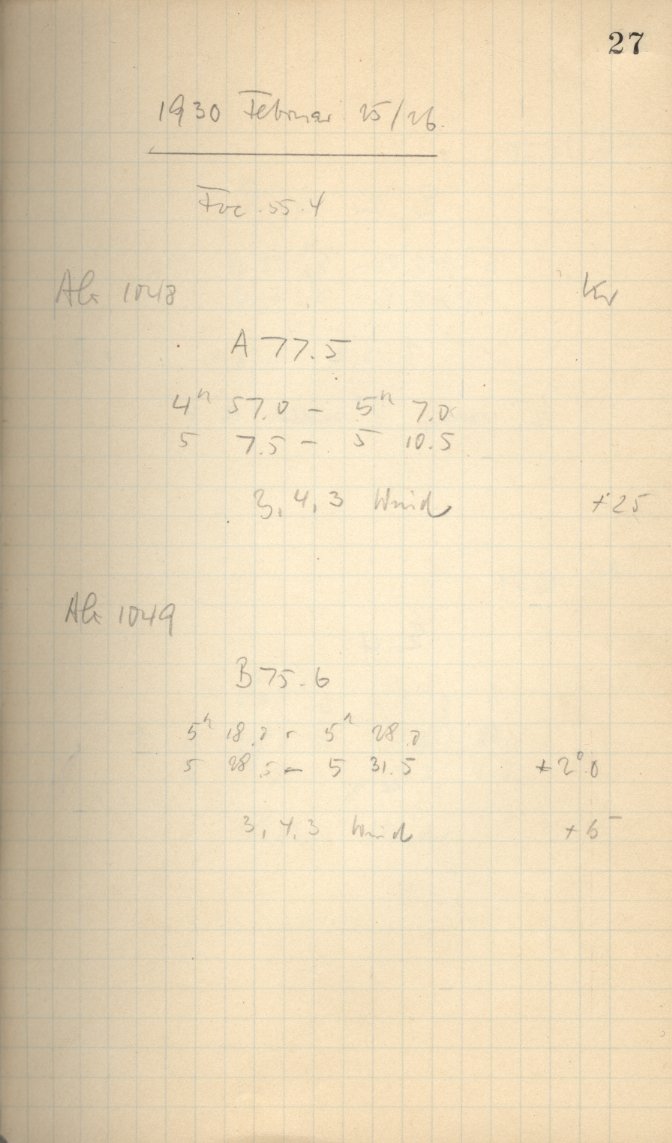 27
1930 Februar 25/26
Foc. 55.4
1048 Kr
A 77.5
4ʰ 57.0 – 5ʰ 7.0
5 7.5 – 5 10.5
3, 4, 3 Wind +25
1049
B 75.6
5ʰ 18.0 – 5ʰ 28.0
5 28.5 – 5 31.5 +2°.0
3, 4, 3 Wind